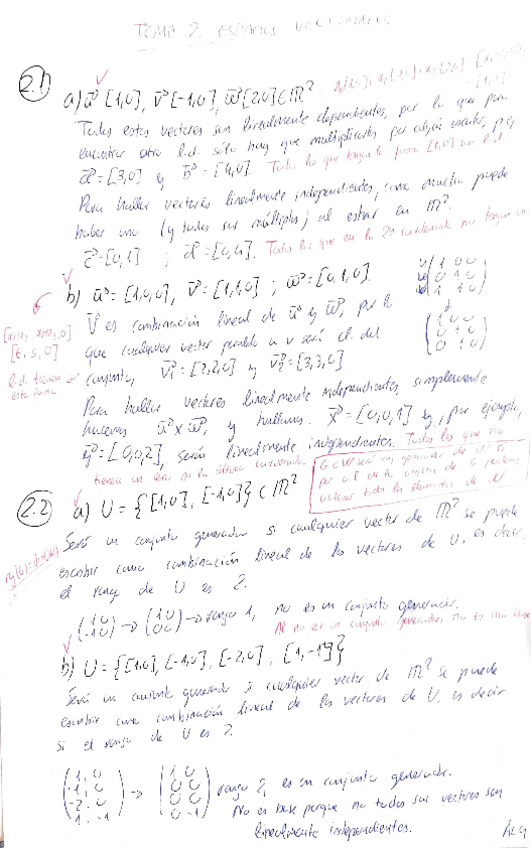 TEMA 2. ESPACIOS VECTORIALES
2.1) a) u⃗ [1,0], v⃗ [-1,0], w⃗ [2,0] ∈ ℝ²
Todos estos vectores son linealmente dependientes, por lo que para
encontrar otro l.d. sólo hay que multiplicarlos por algún escalar, p.ej.
= [3,0] y = [4,0]. Todos los que tengan la forma [t,0] son l.d
Para hallar vectores linealmente independientes, como mucho puede
haber uno (y todos sus múltiplos) al estar en ℝ².
= [0,1] ; = [0,4]. Todos los que en la 2ª coordenada no tengan un
b) u⃗ = [1,0,0], v⃗ = [1,1,0] ; w⃗ = [0,1,0].
V⃗ es combinación lineal de u⃗ y w⃗, por lo
que cualquier vector paralelo a v será l.d. del
conjunto, v⃗₁ = [2,2,0] y v⃗₂ = [3,3,0]
[t, s, 0]
l.d. tienen
esta forma
Para hallar vectores linealmente independientes, simplemente
hacemos u⃗ x w⃗, y hallamos. x⃗ = [0,0,1] y, por ejemplo,
y⃗ = [0,0,2], serán linealmente independientes. Todos los que no
tienen un cero en la última coordenada.
2.2) a) U = {[1,0], [-1,0]} ⊂ ℝ²
Será un conjunto generador si cualquier vector de ℝ² se puede
escribir como combinación lineal de los vectores de U, es decir,
el rango de U es 2.
(1 0
-1 0) → (1 0
0 0) → rango 1, no es un conjunto generador.
Al no ser un conjunto generador, no es una base
b) U = {[1,0], [-1,0], [-2,0], [1,-1]}
Será un conjunto generador si cualquier vector de ℝ² se puede
escribir como combinación lineal de los vectores de U, es decir
si el rango de U es 2.
(1 0
-1 0
-2 0
1 -1) → (1 0
0 0
0 0
0 -1) rango 2, es un conjunto generador.
No es base porque no todos sus vectores son
linealmente independientes.